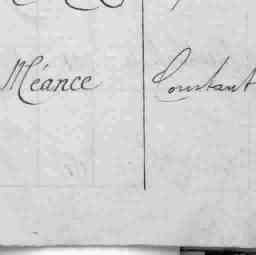 Méance Constant